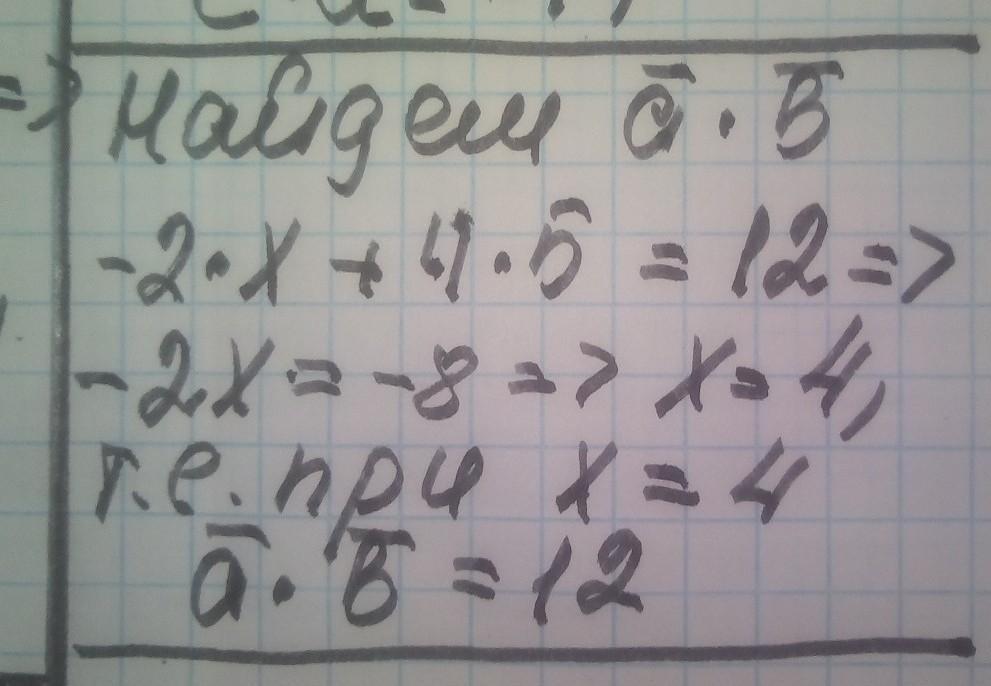 => Найдем a̅ · b̅
-2 · x + 4 · 5 = 12 =>
-2x = -8 => x = 4,
т.е. при x = 4
a̅ · b̅ = 12